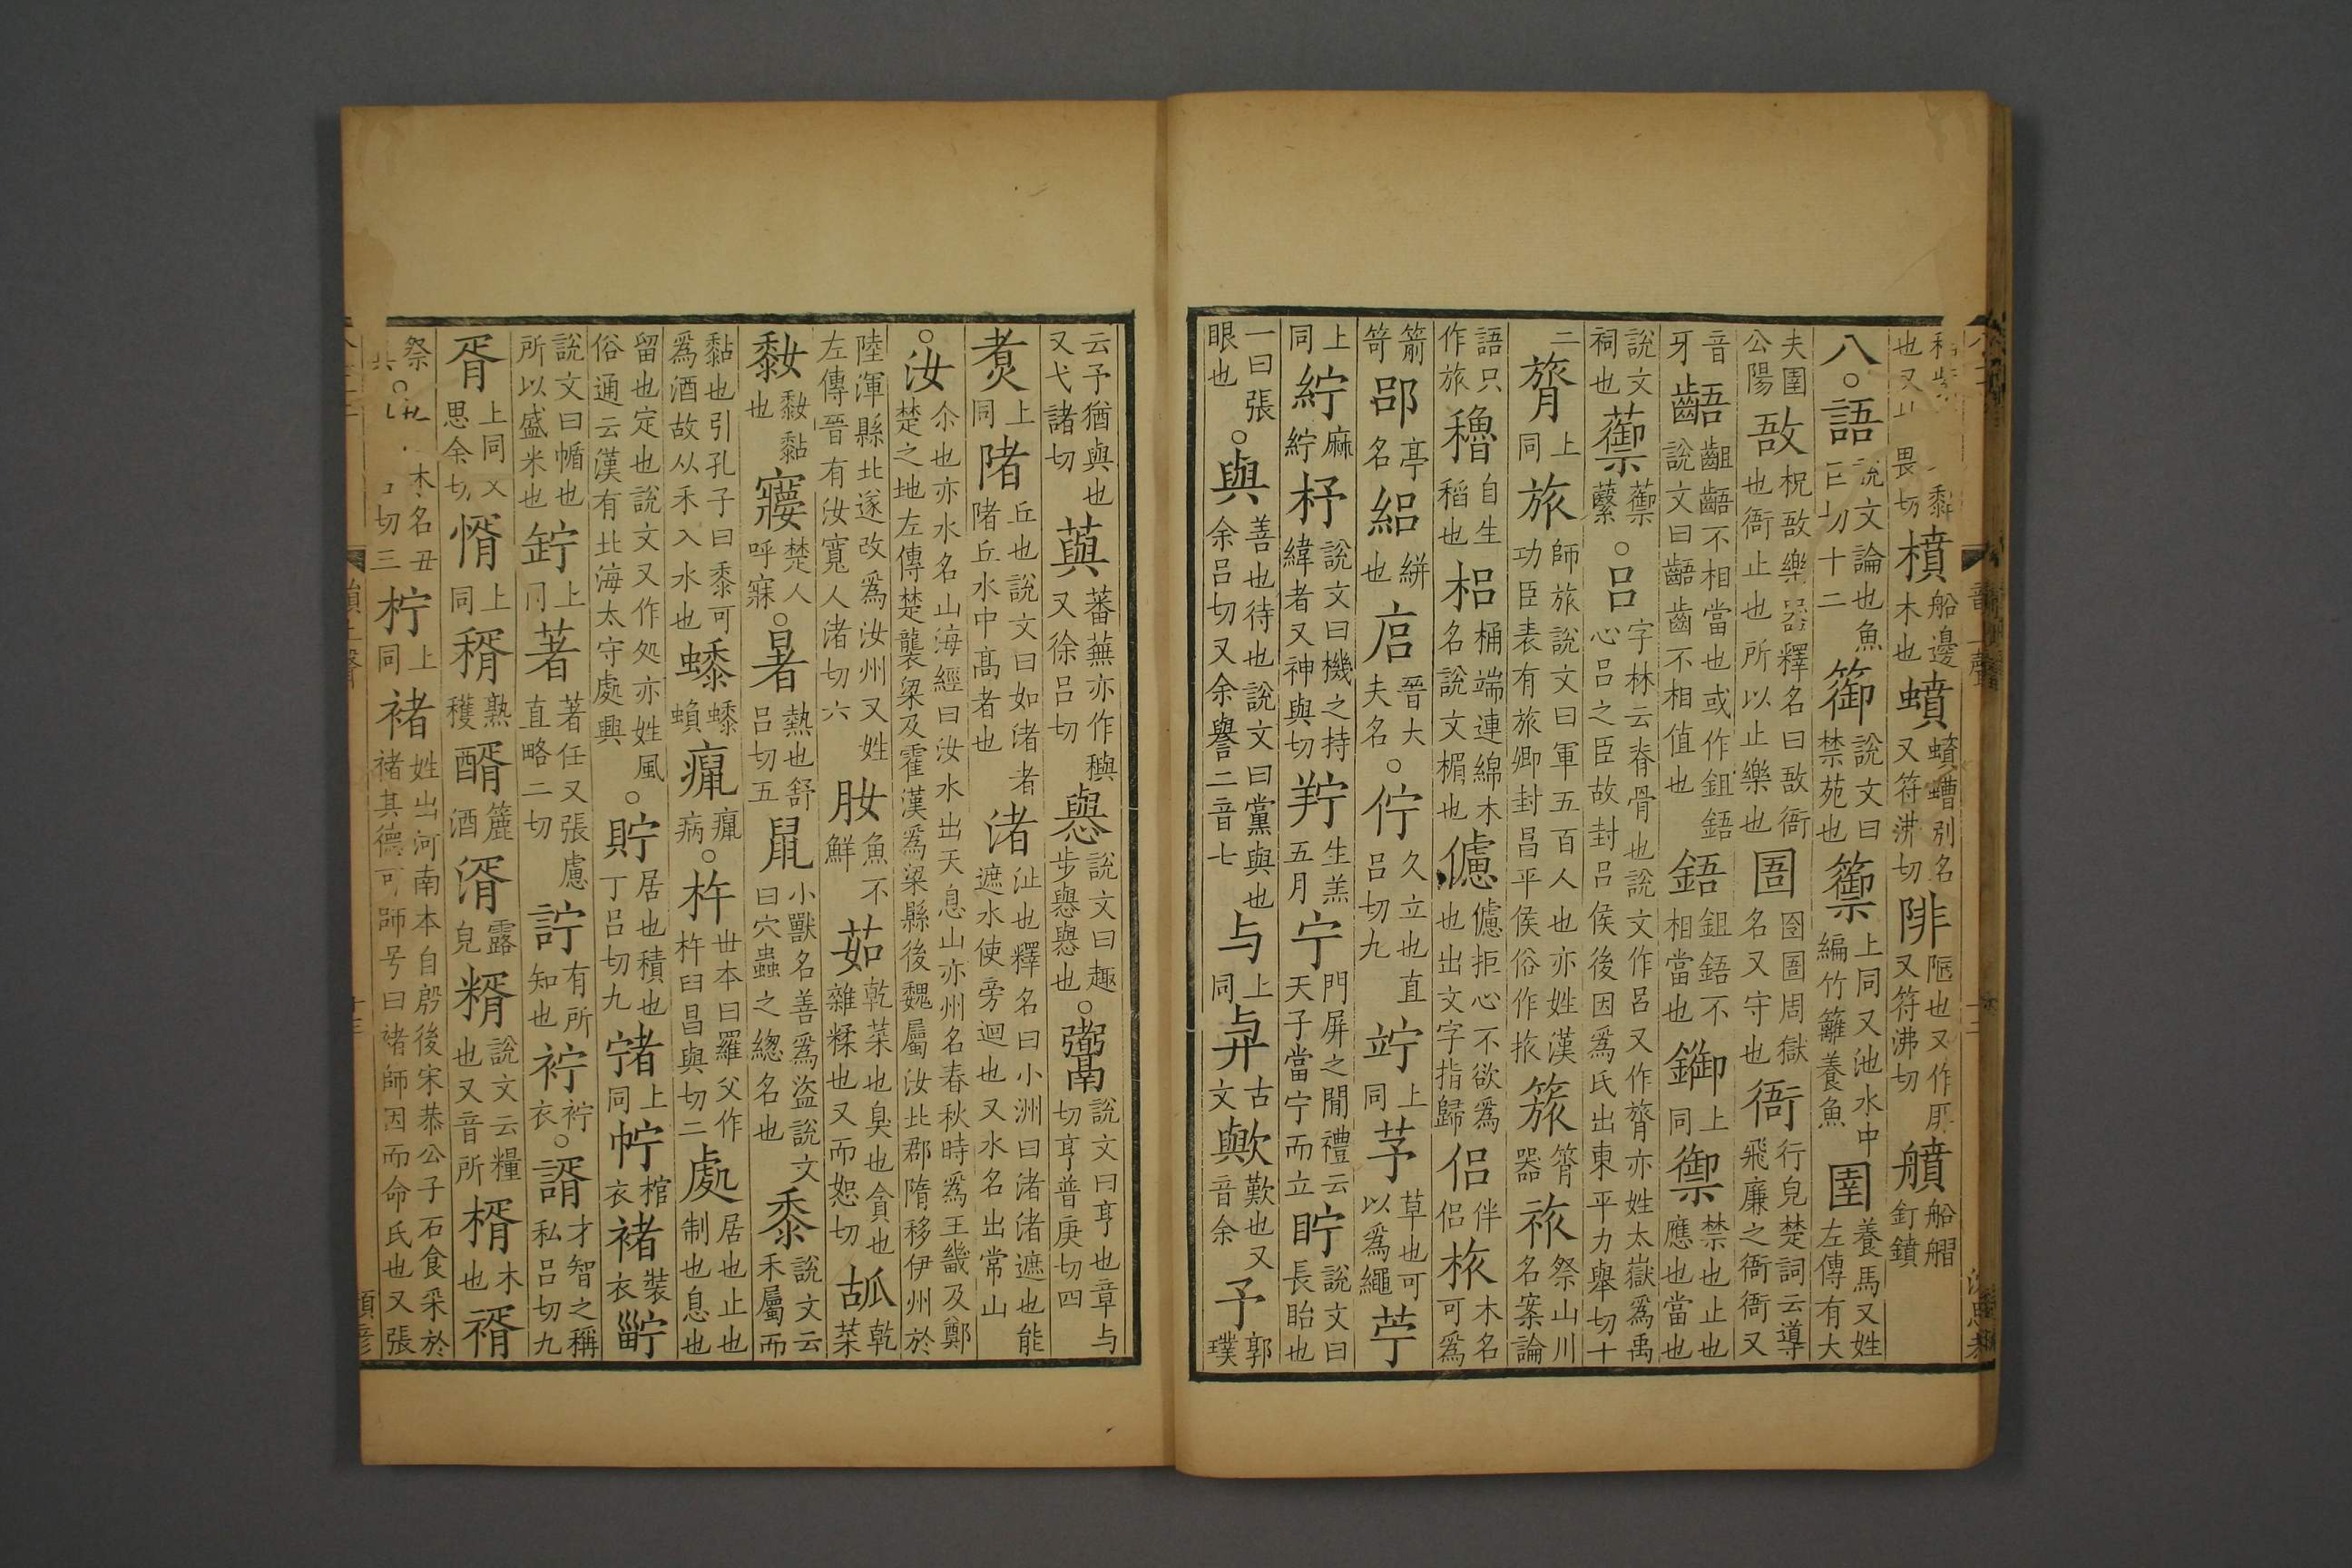 也又畏切橨船邊木也蟦蟦螬別名又符沸切陫陋也又作厞又符沸切䩿船䑺釘鐼
八○語說文論也魚巨切十二篽說文曰禁苑也籞上同又池水中編竹籬養魚圉養馬又姓左傳有大
夫圉公陽敔柷敔樂器釋名曰敔衙也衙止也所以止樂也圄囹圄周獄名又守也衙行皃楚詞云導飛廉之衙衙又
音牙齬齟齬不相當也或作鉏鋙說文曰齬齒不相值也鋙鉏鋙不相當也鋤上同禦禁也止也應也當也
說文祠也蘌蘌蘩○呂字林云脊骨也說文作呂又作膂亦姓太嶽爲禹心呂之臣故封呂侯後因爲氏出東平力舉切十
二膂上同旅師旅說文曰軍五百人也亦姓漢功臣表有旅卿封昌平侯俗作挔簇筲器祣祭山川名案論
語只作旅穭自生稻也梠桶端連綿木名說文楣也儢儢拒心不欲爲也出文字指歸侶伴侶㭚木名可爲
箭笴郘亭名絽絣也㝗晉大夫名○佇久立也直呂切九竚上同芧草也可以爲繩苧
上同紵麻紵杼說文曰機之持緯者又神與切羜生羔五月宁門屏之閒禮云天子當宁而立眝說文曰長眙也
一曰張眼也○與善也待也說文曰黨與也余呂切又余譽二音七与上同𢍱古文歟歎也又音余予郭璞
云予猶與也又弋諸切藇蕃蕪亦作穥又徐呂切懙說文曰趣步懙懙也○鬻說文曰亨也章与切亨普庚切四
煑上同陼丘也說文曰如渚者陼丘水中高者也渚沚也釋名曰小洲曰渚渚遮也能遮水使旁迴也又水名出常山
○汝尒也亦水名山海經曰汝水出天息山亦州名春秋時爲王畿及鄭楚之地左傳楚襲梁及霍漢爲梁縣後魏屬汝北郡隋移伊州於
陸渾縣北遂改爲汝州又姓左傳晉有汝寬人渚切六肗魚不鮮茹乾菜也臭也貪也雜糅也又而恕切𦬔乾菜
䵑䵑黏也㝧楚人呼寐○暑熱也舒呂切五鼠小獸名善爲盜說文曰穴蟲之緫名也黍說文云禾屬而
黏也引孔子曰黍可爲酒故从禾入水也䗪䗪蝜癙癙病○杵世本曰雍父作杵臼昌與切二處居也止也制也息也
留也定也說文又作処亦姓風俗通云漢有北海太守處興○貯居也積也丁呂切九㿾上同㡅棺衣褚裝衣𤰞
說文曰㡒也所以盛米也𦈢上同著著任又張慮直略二切詝有所知也𧘲衣𧘲○諝才智之稱私呂切九
胥上同又思余切㥠上同稰熟穫醑簏酒湑露皃糈說文云糧也又音所楈木也䄌
祭○木名丑切三柠上同褚姓出河南本自殷後宋恭公子石食采於褚其德可師号曰褚師因而命氏也又張